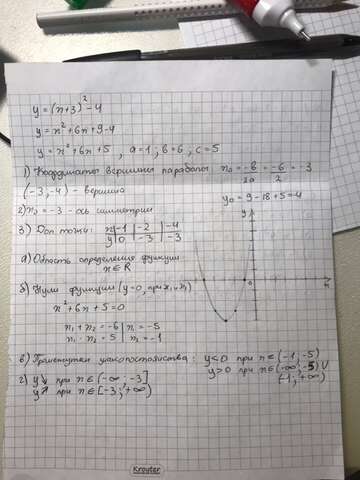 y = (x+3)² - 4
y = x² + 6x + 9 - 4
y = x² + 6x + 5 , a=1 ; b=6 ; c=5
1) Координаты вершины параболы x₀ = -b/2a = -6/2 = -3
(-3; -4) - вершина y₀ = 9 - 18 + 5 = -4
2) x₀ = -3 - ось симметрии
3) Доп точки: x | -1 | -2 | -4
y | 0 | -3 | -3
y
x
а) Область определения функции
x ∈ R
б) Нули функции (y=0, при x₁ и x₂)
x² + 6x + 5 = 0
x₁ + x₂ = -6 | x₁ = -5
x₁ · x₂ = 5 | x₂ = -1
в) Промежутки знакопостоянства: y<0 при x ∈ (-1; -5)
y>0 при x ∈ (-∞; -5) ∪
(-1; +∞)
г) y↘ при x ∈ (-∞; -3]
y↗ при x ∈ [-3; +∞)
Kroyter